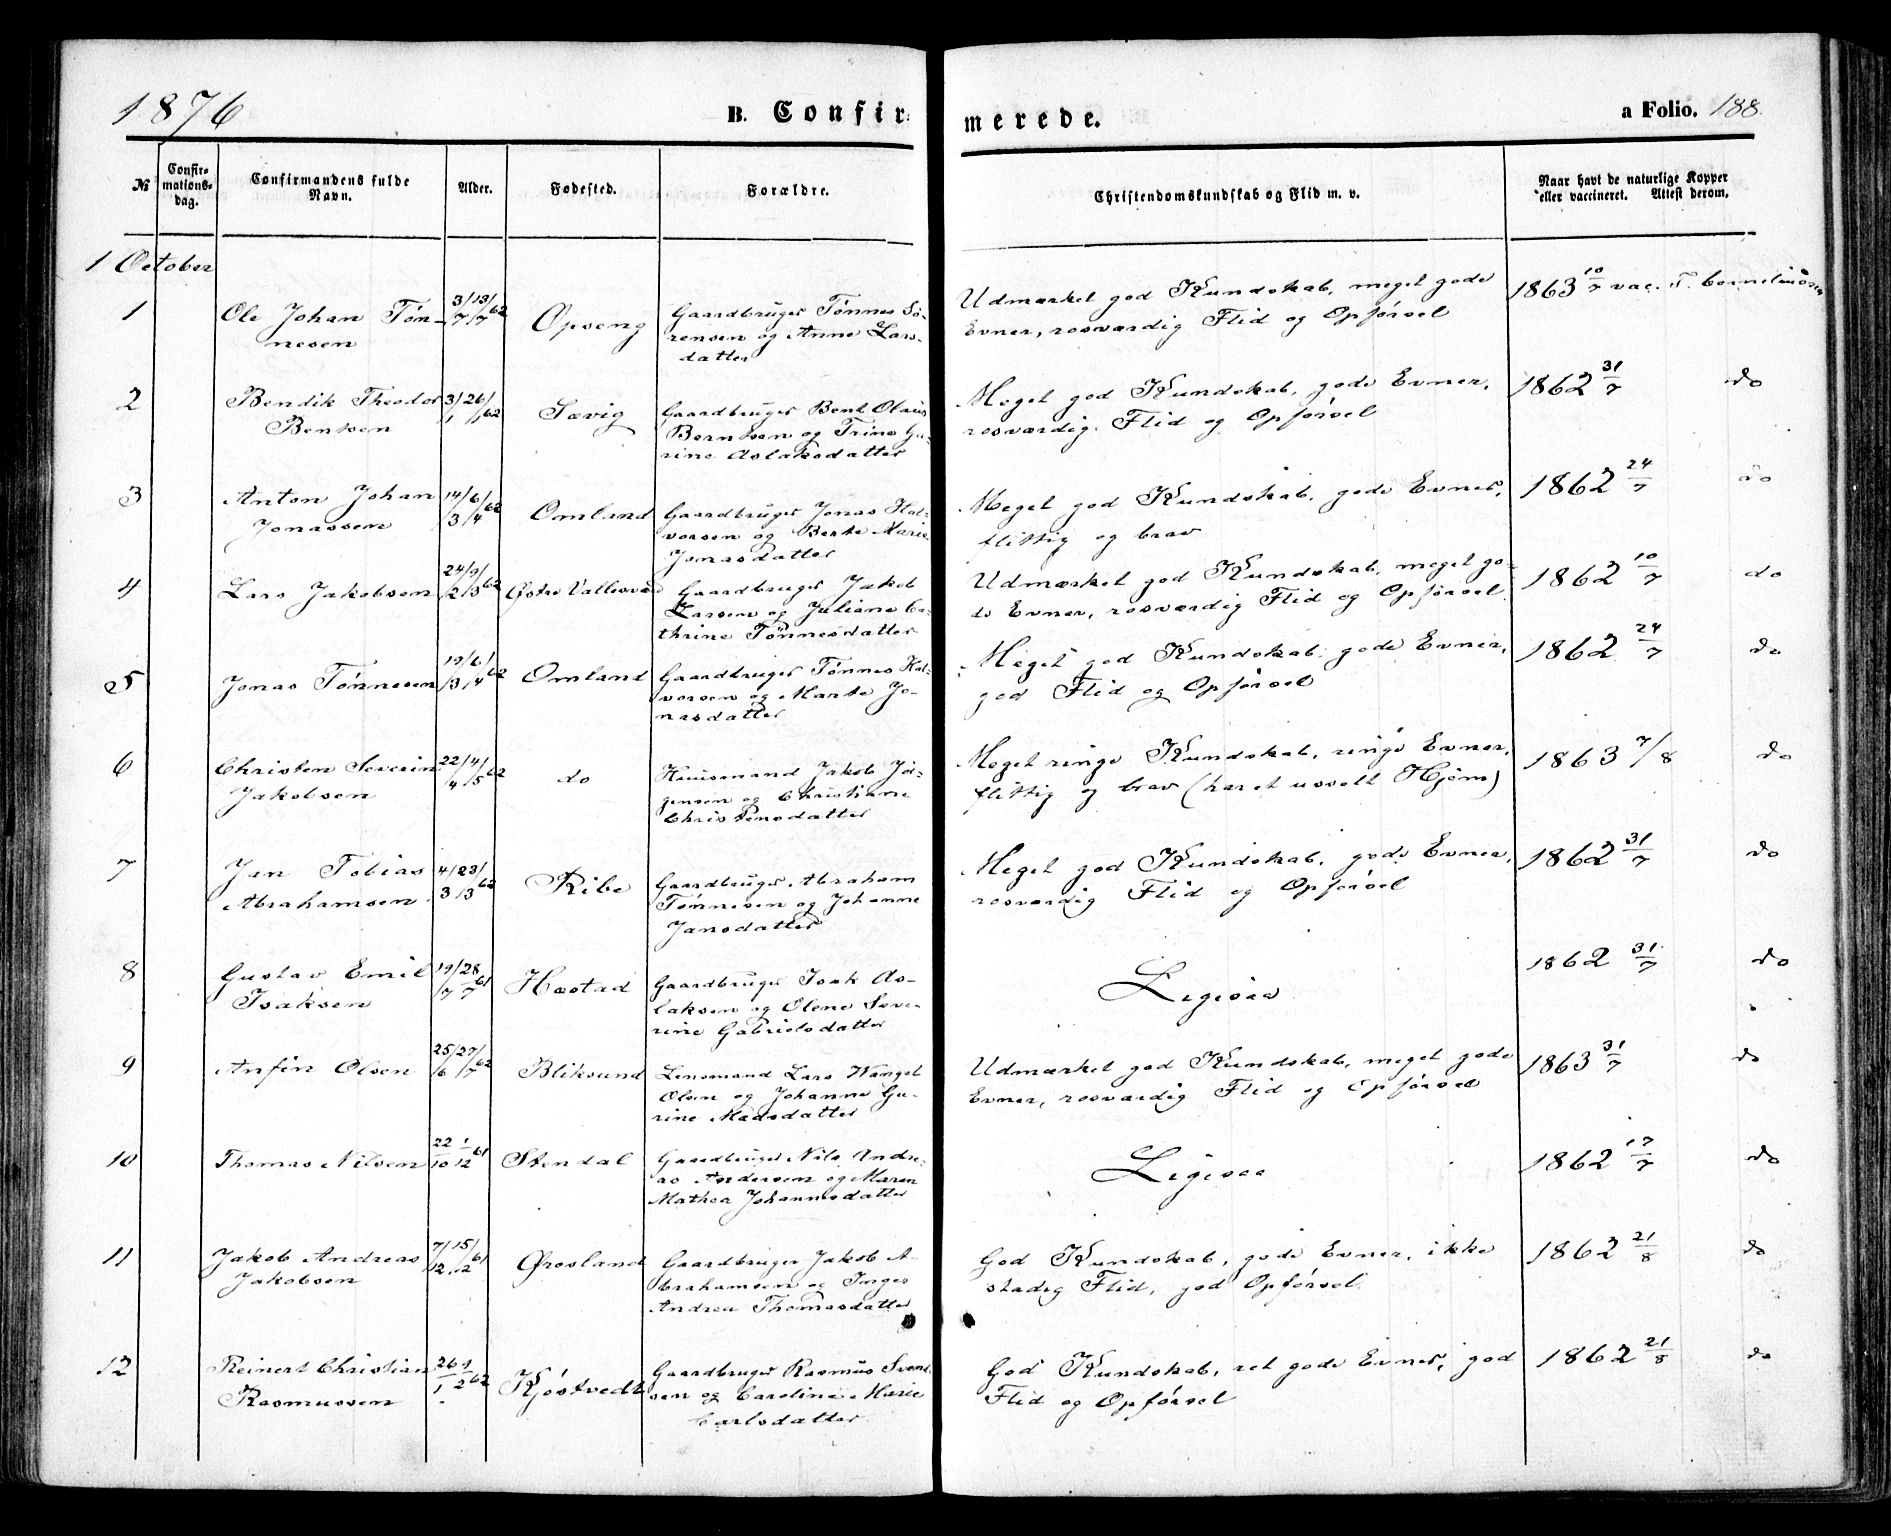 1876
B. Confir=
merede.
a Folio. 188.
№
Confir=
mations=
dag.
Confirmandens fulde
Navn.
Alder.
Fødested.
Forældre.
Christendomskundskab og Flid m. v.
Naar havt de naturlige Kopper
eller vaccineret. Attest derom.
1 October
1 Ole Johan Tøn-
nesen
3/7 13/7 62
Opseng
Gaardbruger Tønnes Sø-
rensen og Anne Lars-
datter
Udmærket god Kundskab, meget gode
Evner, rosværdig Flid og Opførsel
1863 10/7 vac. T. Corneliusen
2 Bendik Theodor
Bentsen
3/1 26/1 62
Sævig
Gaardbruger Bent Olaus
Berntsen og Trine Gu-
rine Aslaksdatter
Meget god Kundskab, gode Evner,
rosværdig Flid og Opførsel
1862 31/7 do
3 Anton Johan
Jonassen
14/3 6/4 62
Omland
Gaardbruger Jonas Hal-
vorsen og Berte Marie
Jonasdatter
Meget god Kundskab, gode Evner,
flittig og brav
1862 24/7 do
4 Lars Jakobsen
24/2 9/3 62
Østre Vallesvæd
Gaardbruger Jakob
Larsen og Juliane Ca-
thrine Tønnesdatter
Udmærket god Kundskab, meget go-
de Evner, rosværdig Flid og Opførsel
1862 10/7 do
5 Jonas Tønnesen
19/3 6/4 62
Omland
Gaardbruger Tønnes Hal-
vorsen og Marte Jo-
nasdatter
Meget god Kundskab, gode Evner,
god Flid og Opførsel
1862 24/7 do
6 Christen Severin
Jakobsen
22/4 4/5 62
do
Huusmand Jakob Jør-
gensen og Christiane
Christensdatter
Meget ringe Kundskab, ringe Evner,
flittig og brav (har et usselt Hjem)
1863 7/8 do
7 Jan Tobias
Abrahamsen
4/3 23/3 62
Ribe
Gaardbruger Abraham
Tønnesen og Johanne
Jansdatter
Meget god Kundskab, gode Evner,
rosværdig Flid og Opførsel
1862 31/7 do
8 Gustav Emil
Isaksen
19/7 28/7 61
Hæstad
Gaardbruger Isak As-
laksen og Olene Seve-
rine Gabrielsdatter
Ligesaa
1862 31/7 do
9 Anfin Olsen
25/6 27/7 62
Bliksund
Lensmand Lars Wangel
Olsen og Johanne Gu-
rine Madsdatter
Udmærket god Kundskab, meget gode
Evner, rosværdig Flid og Opførsel
1863 31/7 do
10 Thomas Nilsen
22/10 1/12 61
Stendal
Gaardbruger Nils Andre-
as Andersen og Maren
Mathea Johannesdatter
Ligesaa
1862 17/7 do
11 Jakob Andreas
Jakobsen
7/12 15/12 61
Øresland
Gaardbruger Jakob A-
brahamsen og Inger
Andrea Thomasdatter
God Kundskab, gode Evner, ikke
stadig Flid, god Opførsel
1862 21/8 do
12 Reinert Christian
Rasmussen
26/1 9/2 62
Kjøstvedt
Gaardbruger Rasmus Svend-
sen og Caroline Marie
Carlsdatter
God Kundskab, ret gode Evner, god
Flid og Opførsel
1862 21/8 do